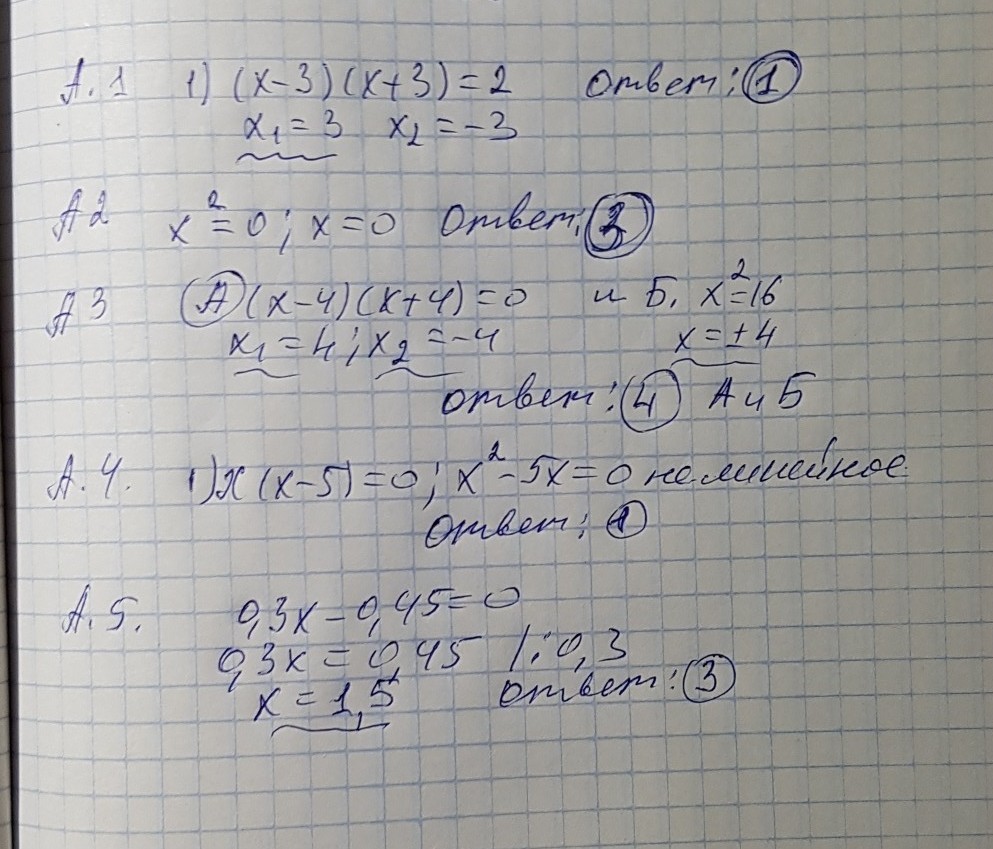 А.1 1) (x-3)(x+3)=2 Ответ: 1
x₁=3 x₂=-3
А2 x²=0; x=0 Ответ: 3
А3 А (x-4)(x+4)=0 и Б. x²=16
x₁=4; x₂=-4 x=±4
Ответ: 4 А и Б
А.4. 1) x(x-5)=0; x²-5x=0 нелинейное
Ответ: 1
А.5. 0,3x-0,45=0
0,3x=0,45 /:0,3
x=1,5 Ответ: 3